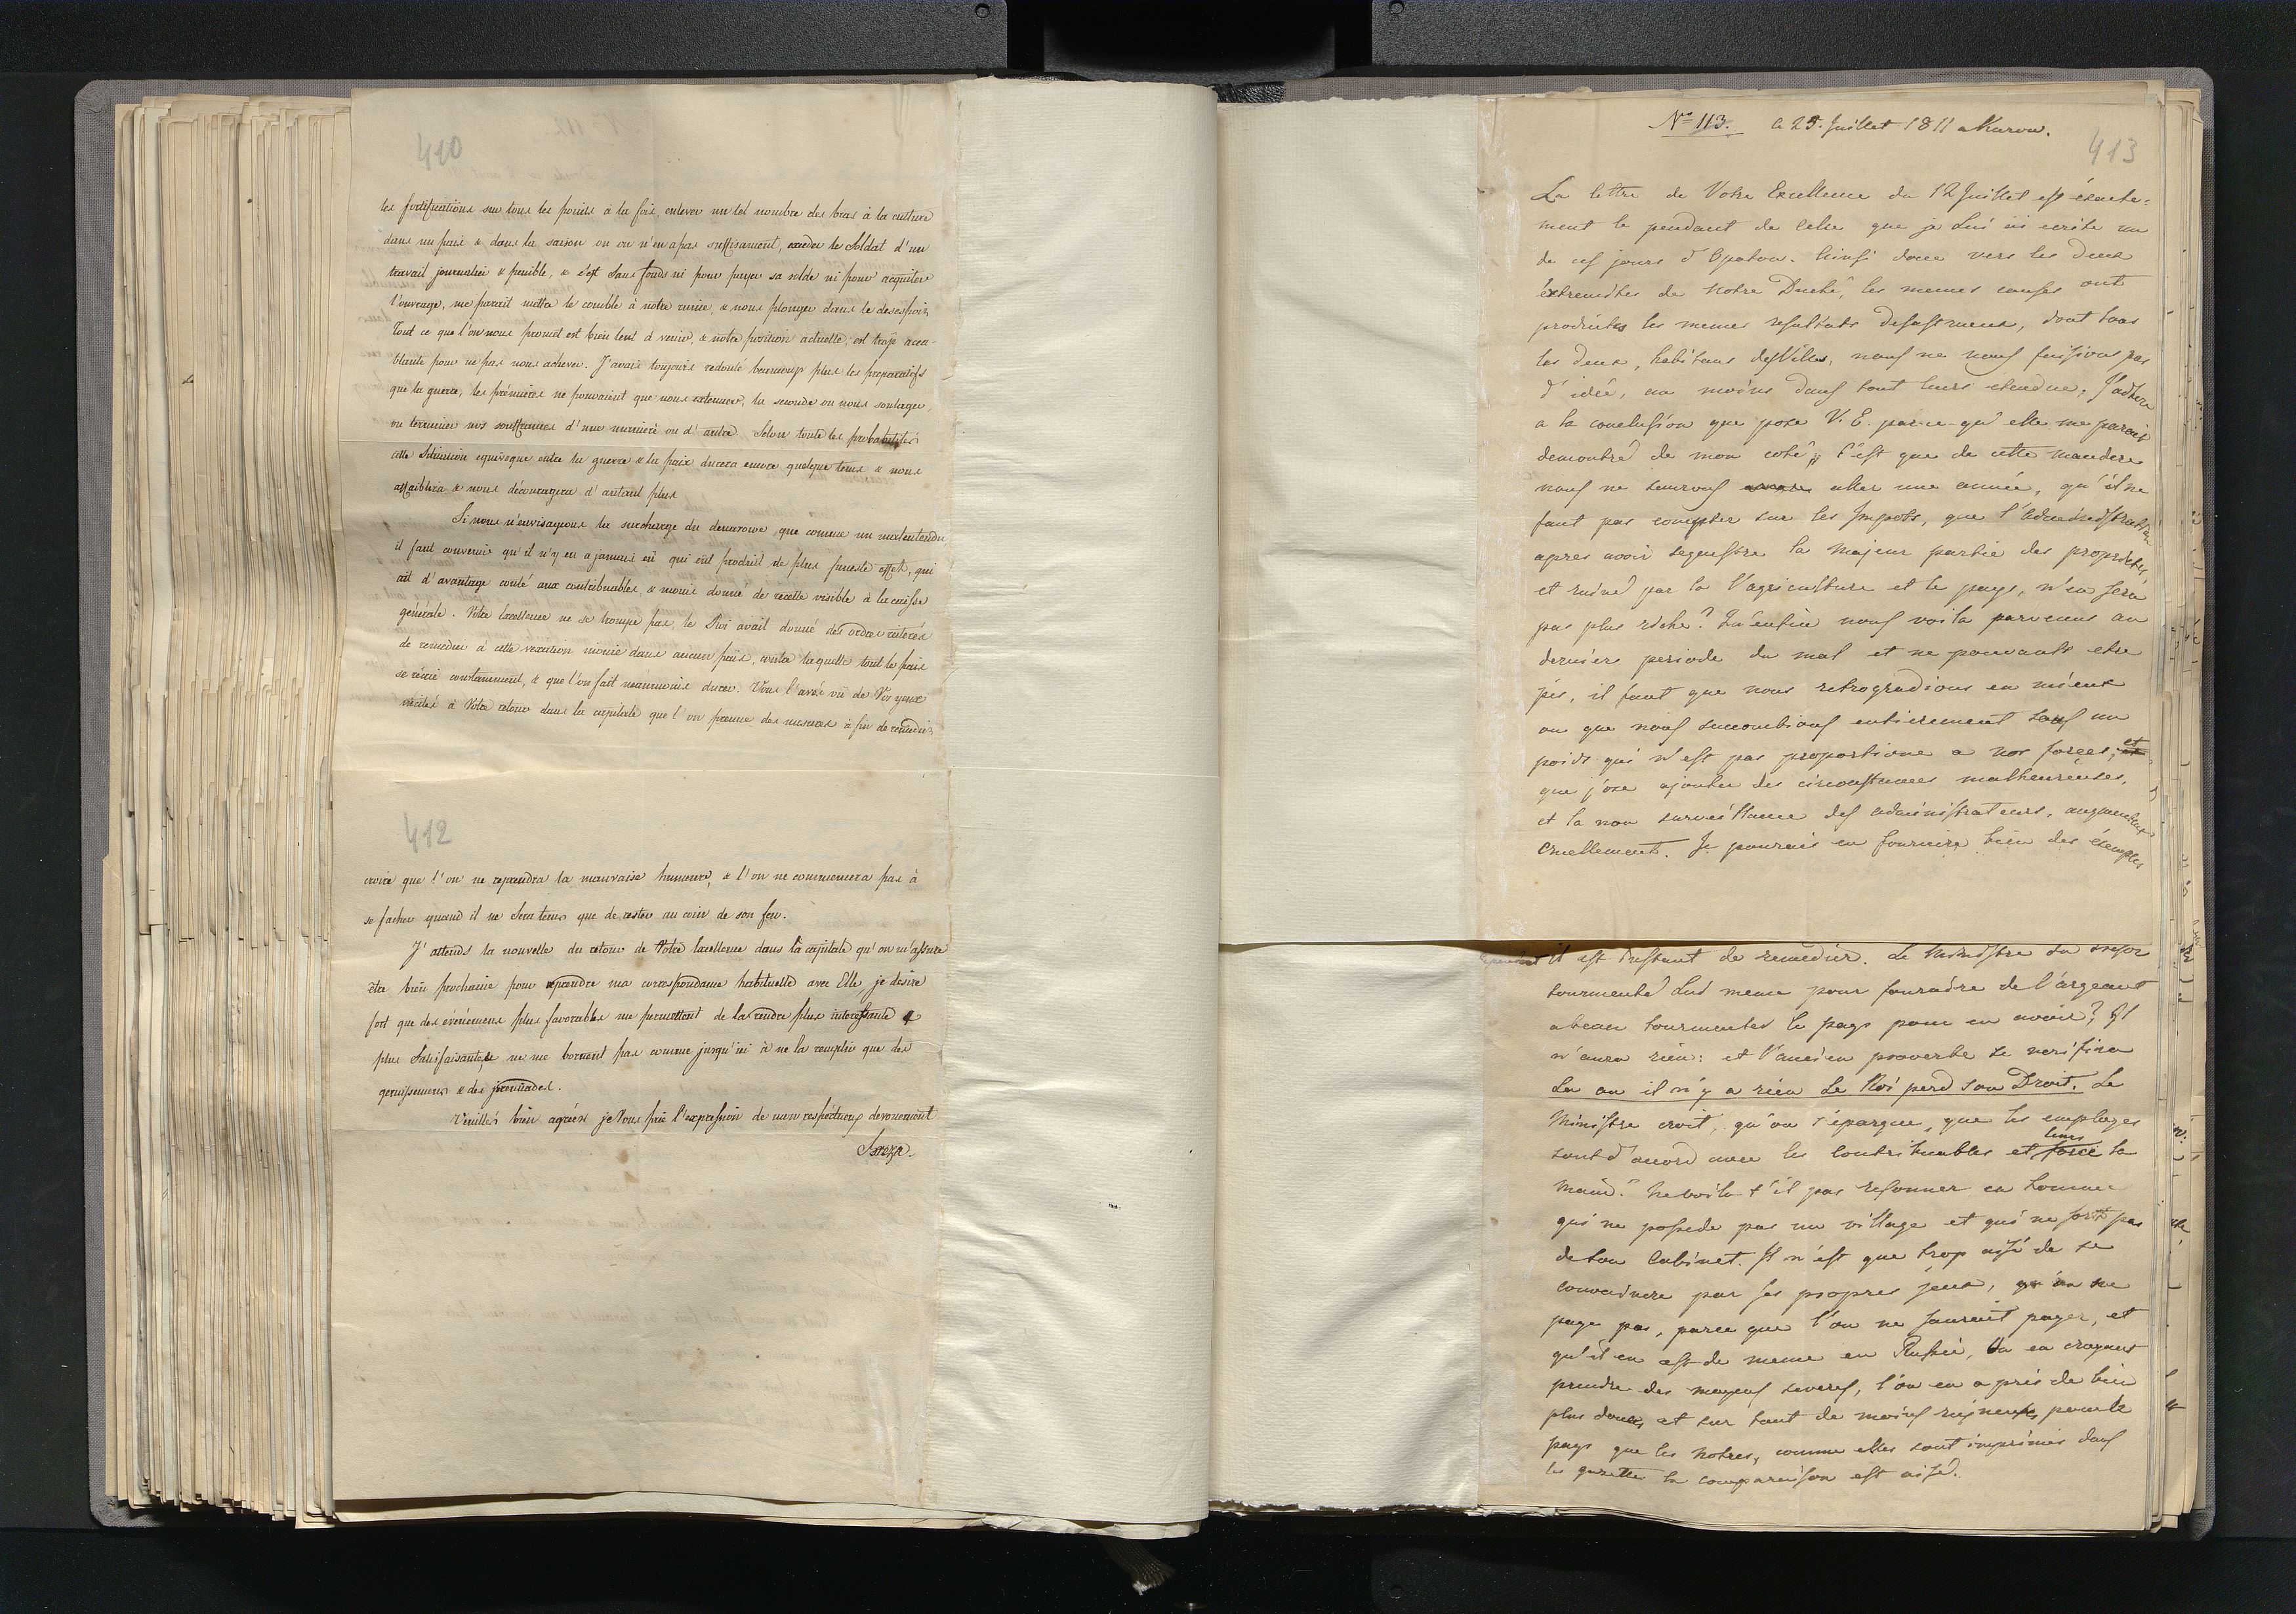 410
les fortifications sur tous les points à la fois, enlever un tel nombre des bras à la culture
dans un païs & dans la saison ou on n'en a pas suffisament, exceder le Soldat d'un
travail journalier & penible, & c'est sans fonds ni pour payer sa solde ni pour acquiter
l'ouvrage, me parait mettre le comble à notre ruine, & nous plonger dans le desespoir
Tout ce que l'on nous promet est bien lent à venir, & notre position actuelle, est trop acca-
blante pour ne pas nous achever. J'avais toujours redouté beaucoup plus les preparatifs
que la guerre, les prémieres ne pouvaient que nous extenuer, la seconde ou nous soulager,
ou terminer nos souffrances d'une maniere ou d'autre. Selon toute les probabilités
cette Situation equivoque entre la guerre & la paix durera encore quelque tems & nous
affaiblira & nous découragera d'autant plus
Si nous n'envisageons la surcharge du que comme un malentendu
il faut convenir qu'il n'y en a jamais eû qui eût produit de plus funeste effet, qui
ait d'avantage couté aux contribuables & moins donné de recette visible à la caisse
générale. Votre Excellence ne se trompe pas, le Roi avait donné des ordres reiterés
de remedier à cette vexation inouie dans aucun païs, contre laquelle tout le païs
se récrie constamment, & que l'on fait neanmoins durer. Vous l'avés vû de Vos yeux
à Votre retour dans la capitale que l'on prenne des mesures à fin de remedier
412
croire que l'on ne reprendra la mauvaise humeur, & l'on ne commencera pas à
se facher quand il ne Sera tems que de rester au coin de son feu.
J'attends la nouvelle du retour de Votre Excellence dans la capitale qu'on m'assure
être bien prochaine pour reprendre ma correspondance habituelle avec Elle, je desire
fort que des évenemens plus favorables me permettent de la rendre plus interessante &
plus Satisfaisante, & ne me bornent pas comme jusqu'ici à ne la remplir que des
gemissemens & des jeremiades.
Veuillés bien agréer je Vous prie l'expression de mon respectueux devouement
No 113. le 25. Juillet 1811 a Kurow.
413
La lettre de Votre Excellence du 12 Juillet est éxacte-
ment le pendant de celle que je Lui ai ecrite un
de ces jours d'Opatow. Ainsi donc vers les deux
éxtremités de Notre Duché, les memes causes ont
produites les memes resultats desastreux, dont tous
les deux, habitans des Villes, nous ne nous faisions pas
d'idée, au moins dans tout leurs etendue. J'adhere
a la conclusion que pose V. E. par-ce-qu'elle me parait
demontré de mon coté, C'est que de cette maniere
nous ne saurons aller une année, qu'il ne
faut pas compter sur les Impots, que l'Administration
apres avoir sequestre la Majeur partie des proprietés
et ruiné par la l'agriculture et le pays, n'en sera
pas plus riche? Qu'enfin nous voila parvenus au
dernier periode du mal et ne pouvants etre
pis, il faut que nous retrogradions en mieux
ou que nous succombions entierement sous un
poids qui n'est pas proportione a nos forces, et
que j'ose ajouter des circonstances malheureuses,
et la non surveillance des administrateurs, augmentent
cruellement. Je pourrais en fournire bien des éxemples
il est instant de remedier. Le Ministre du tresor
tourmenté Lui meme pour fournire de l'argeant
a beau tourmenter le pays pour en avoir? Il
n'aura rien: et l'ancien proverbe se verifira
La ou il n'y a rien Le Roi perd son Droit. Le
Ministre croit, qu'on s'epargne, que les employes
sont d'accord avec les Contribuables et leurs force la
main. Ne voila t'il pas resonner en homme
qui ne possede pas un village et qui ne sort pas
de son Cabinet. Il n'est que trop aisé de se
convaincre par ses propres jeux, qu'on ne
paye pas, parce que l'on ne saurait payer, et
qu'il en est de meme en Russie, Ou en croyant
prendre des moyens severes, l'on en a pris de bien
plus doux, et sur tout de moins ruineux pour le
pays que les Notres, comme elles sont imprimés dans
les gazettes la comparaison est aisé.